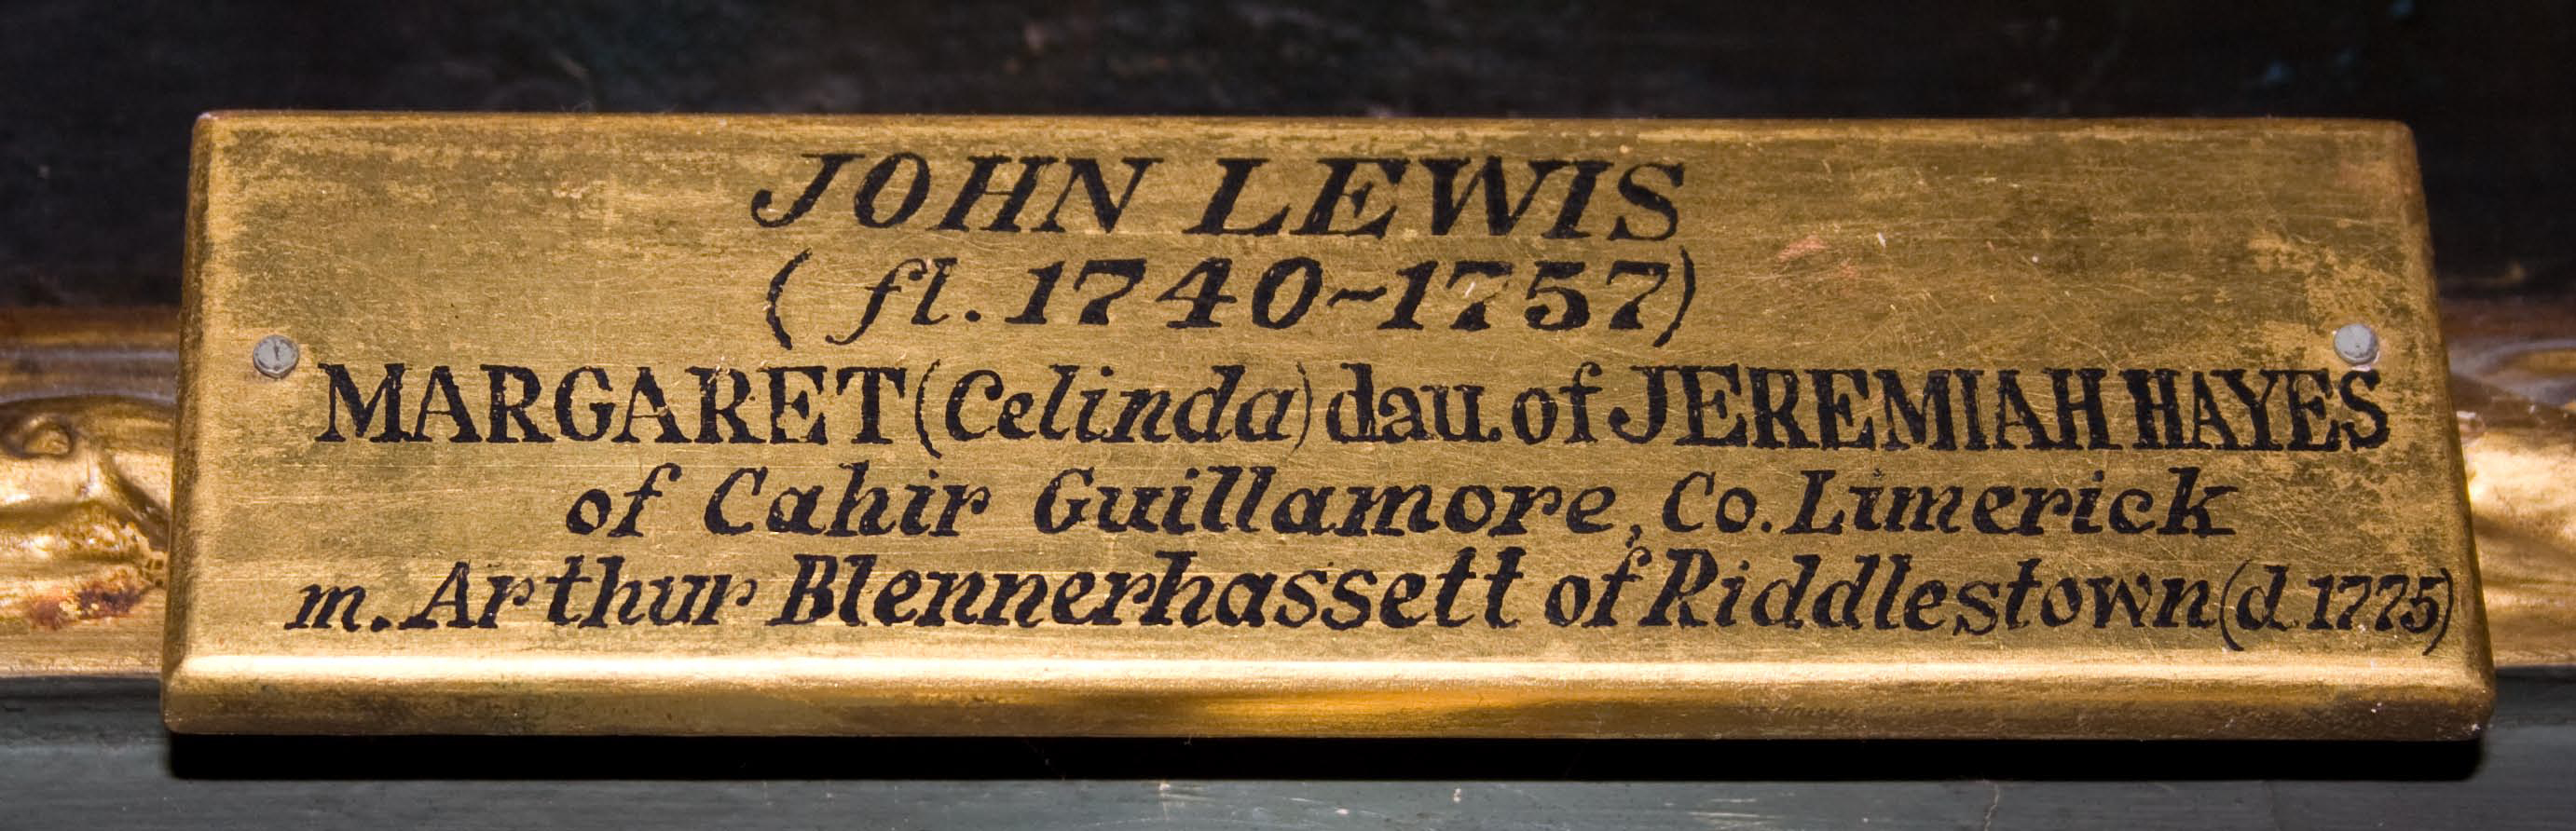 JOHN LEWIS
( fl. 1740~1757)
MARGARET (Celinda) dau. of JEREMIAH HAYES
of Cahir Guillamore, Co. Limerick
m. Arthur Blennerhassett of Riddlestown (d. 1775)